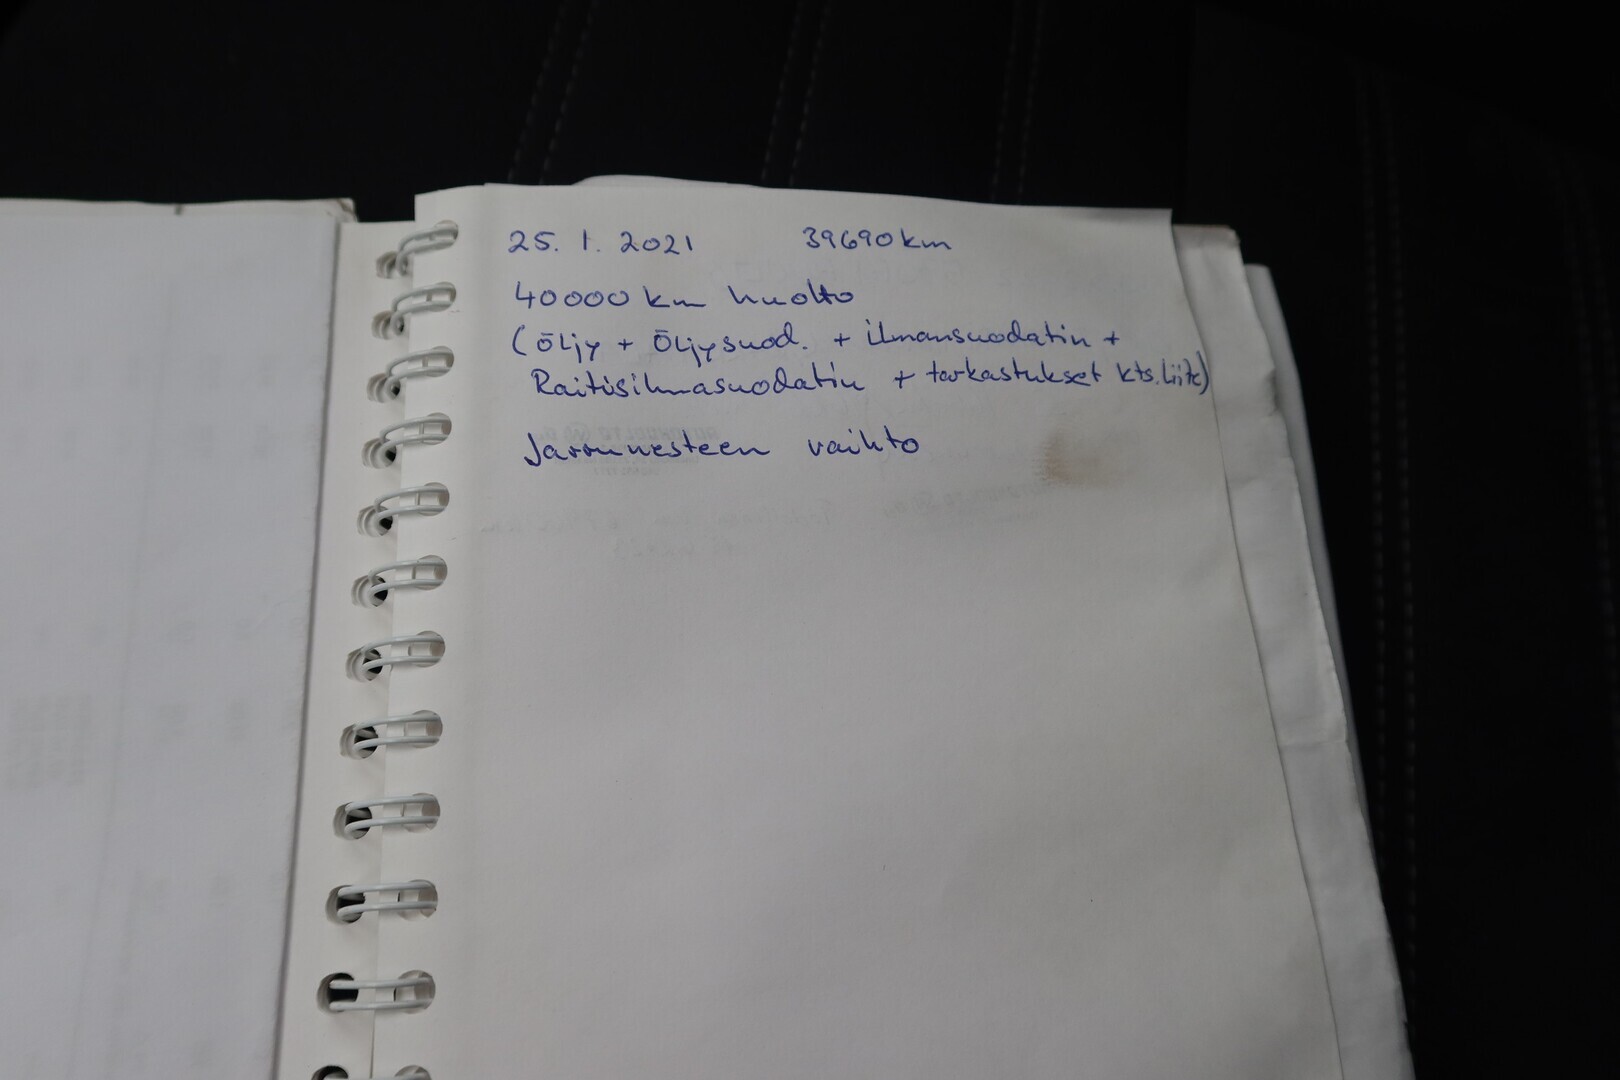 25. 1. 2021 39690 km
40000 km huolto
(Öljy + Öljysuod. + ilmansuodatin +
Raitisilmasuodatin + tarkastukset kts. liite)
Jarrunesteen vaihto